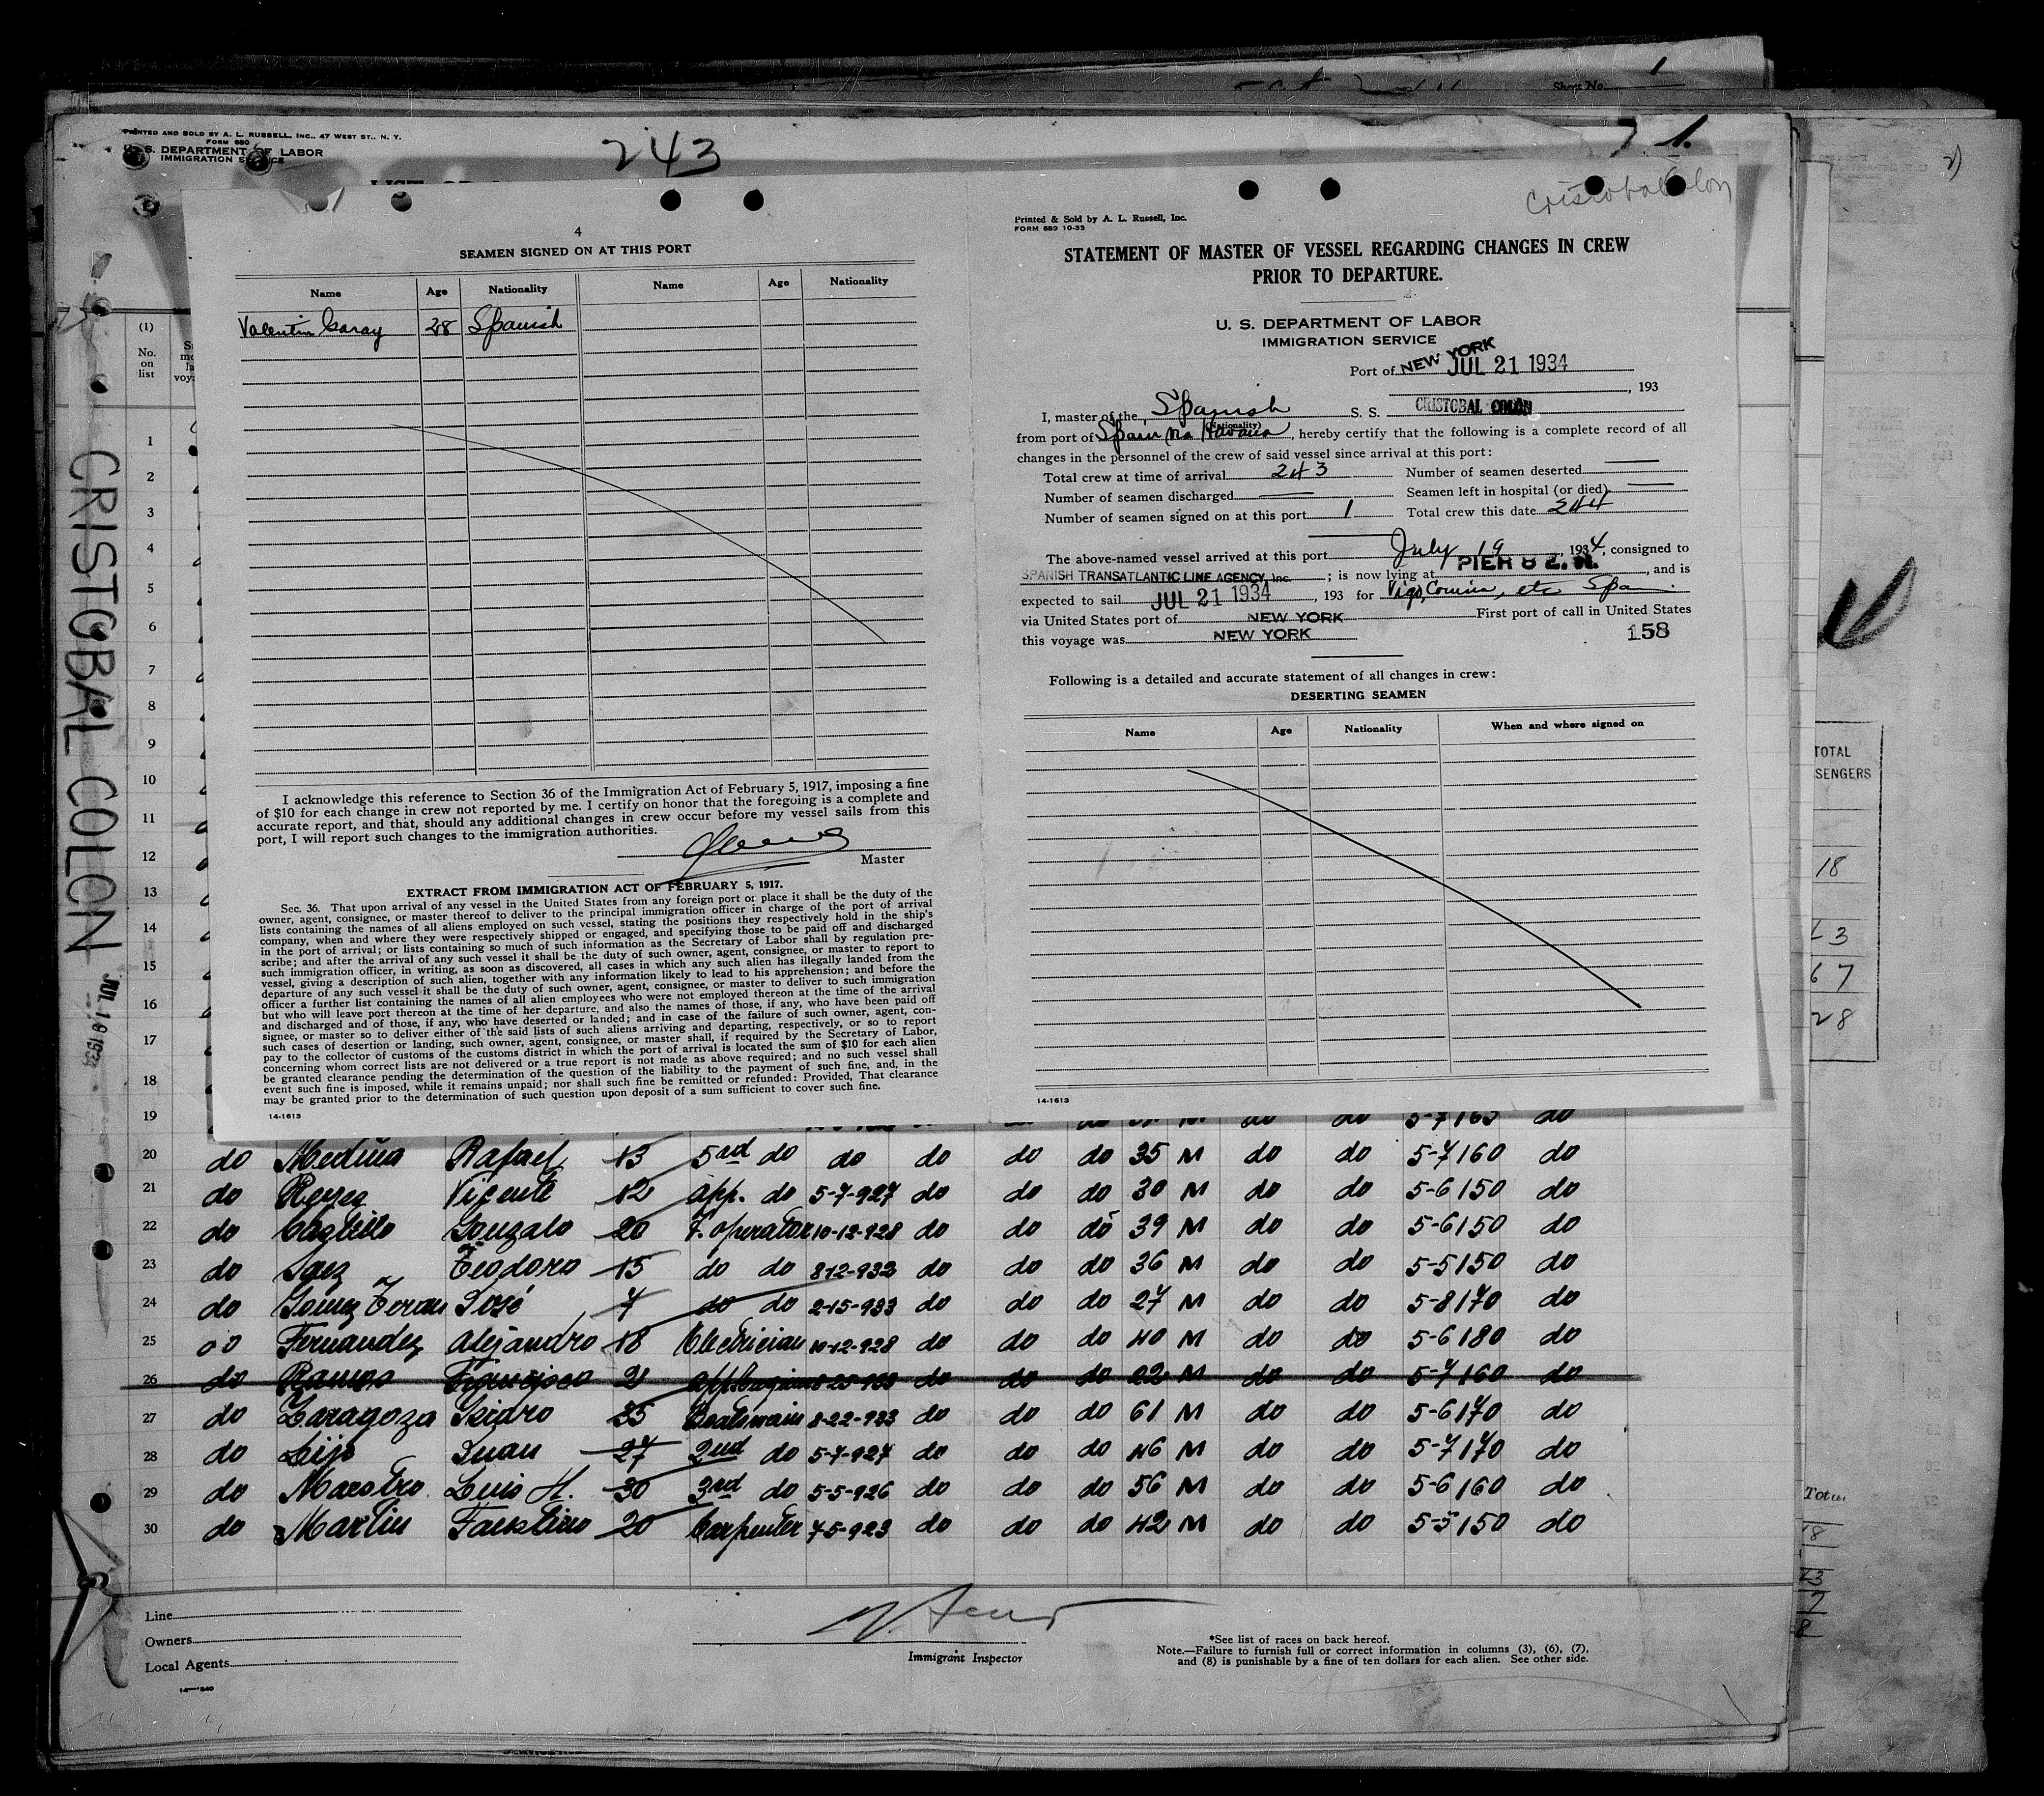 Sheet No. 1
PRINTED AND SOLD BY A. L. RUSSELL, INC., 47 WEST ST., N. Y.
FORM 680
U. S. DEPARTMENT OF LABOR
IMMIGRATION SERVICE
243
1.
CRISTOBAL COLON
(1)
No.
on
list
4
SEAMEN SIGNED ON AT THIS PORT
Name Age Nationality Name Age Nationality
Valentin Garay 28 Spanish
I acknowledge this reference to Section 36 of the Immigration Act of February 5, 1917, imposing a fine
of $10 for each change in crew not reported by me. I certify on honor that the foregoing is a complete and
accurate report, and that, should any additional changes in crew occur before my vessel sails from this
port, I will report such changes to the immigration authorities.
Master
EXTRACT FROM IMMIGRATION ACT OF FEBRUARY 5, 1917.
Sec. 36. That upon arrival of any vessel in the United States from any foreign port or place it shall be the duty of the
owner, agent, consignee, or master thereof to deliver to the principal immigration officer in charge of the port of arrival
lists containing the names of all aliens employed on such vessel, stating the positions they respectively hold in the ship's
company, when and where they were respectively shipped or engaged, and specifying those to be paid off and discharged
in the port of arrival; or lists containing so much of such information as the Secretary of Labor shall by regulation pre-
scribe; and after the arrival of any such vessel it shall be the duty of such owner, agent, consignee, or master to report to
such immigration officer, in writing, as soon as discovered, all cases in which any such alien has illegally landed from the
vessel, giving a description of such alien, together with any information likely to lead to his apprehension; and before the
departure of any such vessel it shall be the duty of such owner, agent, consignee, or master to deliver to such immigration
officer a further list containing the names of all alien employees who were not employed thereon at the time of the arrival
but who will leave port thereon at the time of her departure, and also the names of those, if any, who have been paid off
and discharged and of those, if any, who have deserted or landed; and in case of the failure of such owner, agent, con-
signee, or master so to deliver either of the said lists of such aliens arriving and departing, respectively, or so to report
such cases of desertion or landing, such owner, agent, consignee, or master shall, if required by the Secretary of Labor,
pay to the collector of customs of the customs district in which the port of arrival is located the sum of $10 for each alien
concerning whom correct lists are not delivered or a true report is not made as above required; and no such vessel shall
be granted clearance pending the determination of the question of the liability to the payment of such fine, and, in the
event such fine is imposed, while it remains unpaid; nor shall such fine be remitted or refunded: Provided, That clearance
may be granted prior to the determination of such question upon deposit of a sum sufficient to cover such fine.
14-1613
Cristobal Colon
Printed & Sold by A. L. Russell, Inc.
FORM 689 10-33
STATEMENT OF MASTER OF VESSEL REGARDING CHANGES IN CREW
PRIOR TO DEPARTURE.
U. S. DEPARTMENT OF LABOR
IMMIGRATION SERVICE
Port of NEW YORK JUL 21 1934
, 193
I, master of the Spanish S. S. CRISTOBAL COLON
(Nationality)
from port of Spain via Havana, hereby certify that the following is a complete record of all
changes in the personnel of the crew of said vessel since arrival at this port:
Total crew at time of arrival 243 Number of seamen deserted —
Number of seamen discharged — Seamen left in hospital (or died) —
Number of seamen signed on at this port 1 Total crew this date 244
The above-named vessel arrived at this port July 19, 1934, consigned to
SPANISH TRANSATLANTIC LINE AGENCY, Inc. ; is now lying at PIER 8 E. R. , and is
expected to sail JUL 21 1934, 193 for Vigo, Coruña, etc Spain
via United States port of NEW YORK First port of call in United States
this voyage was NEW YORK 158
Following is a detailed and accurate statement of all changes in crew:
DESERTING SEAMEN
Name Age Nationality When and where signed on
14-1613
1
2
3
4
5
6
7
8
9
10
11
12
13
14
15
16
17
18
19 5-7 165 do
20 do Medina Rafael 13 3rd do do do do do 35 M do do 5-7 160 do
21 do Reyes Vicente 12 app. do 5-7-927 do do do 30 M do do 5-6 150 do
22 do Gonzalo 20 T. operator 10-12-928 do do do 39 M do do 5-6 150 do
23 do Saez Teodoro 15 do do 8-12-933 do do do 36 M do do 5-5 150 do
24 do Gomez Teran José 4 do do 2-15-933 do do do 27 M do do 5-8 170 do
25 do Fernandez Alejandro 18 Electrician 10-12-928 do do do 40 M do do 5-6 180 do
26 do Ramos Francisco 2 do do do 22 M do do 5-7 160 do
27 do Zaragoza Isidro 35 Boatswain 8-22-933 do do do 61 M do do 5-6 170 do
28 do Lijo Juan 27 2nd do 5-7-927 do do do 46 M do do 5-7 170 do
29 do Maestro Luis H. 30 3rd do 5-5-926 do do do 56 M do do 5-6 160 do
30 do Martin Faustino 20 Carpenter 7-5-923 do do do 42 M do do 5-5 150 do
Line
Owners
Local Agents
Immigrant Inspector
*See list of races on back hereof.
Note.—Failure to furnish full or correct information in columns (3), (6), (7),
and (8) is punishable by a fine of ten dollars for each alien. See other side.
TOTAL
SENGERS
18
67
28
Total
18